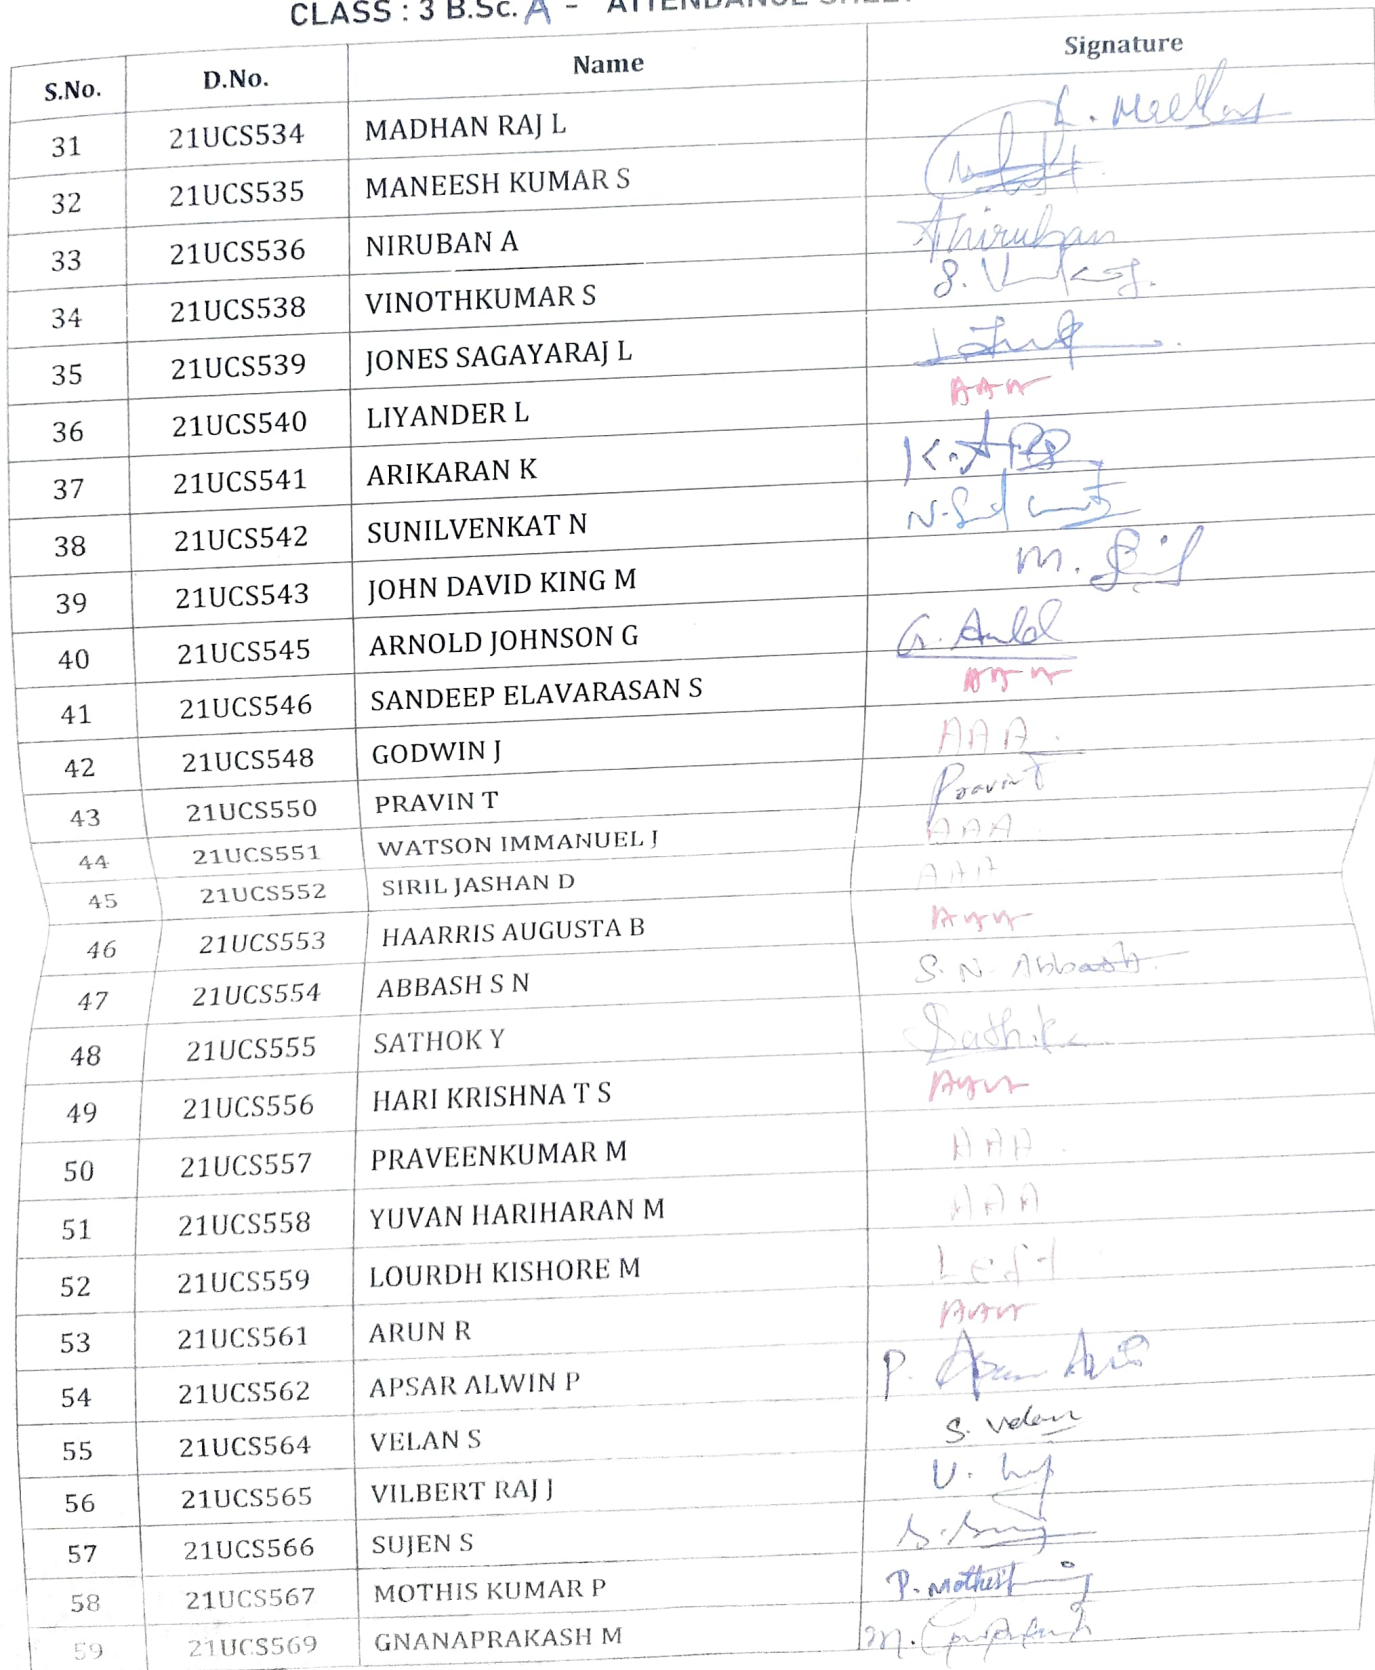 CLASS : 3 B.Sc. A - ATTENDANCE SHEET
S.No. D.No. Name Signature
31 21UCS534 MADHAN RAJ L
32 21UCS535 MANEESH KUMAR S
33 21UCS536 NIRUBAN A
34 21UCS538 VINOTHKUMAR S
35 21UCS539 JONES SAGAYARAJ L
36 21UCS540 LIYANDER L AAA
37 21UCS541 ARIKARAN K
38 21UCS542 SUNILVENKAT N
39 21UCS543 JOHN DAVID KING M
40 21UCS545 ARNOLD JOHNSON G
41 21UCS546 SANDEEP ELAVARASAN S AAA
42 21UCS548 GODWIN J AAA
43 21UCS550 PRAVIN T Pravin T
44 21UCS551 WATSON IMMANUEL J AAA
45 21UCS552 SIRIL JASHAN D AAA
46 21UCS553 HAARRIS AUGUSTA B AAA
47 21UCS554 ABBASH S N S. N. Abbash
48 21UCS555 SATHOK Y
49 21UCS556 HARI KRISHNA T S AAA
50 21UCS557 PRAVEENKUMAR M AAA
51 21UCS558 YUVAN HARIHARAN M AAA
52 21UCS559 LOURDH KISHORE M Left
53 21UCS561 ARUN R AAA
54 21UCS562 APSAR ALWIN P
55 21UCS564 VELAN S S. Velan
56 21UCS565 VILBERT RAJ J
57 21UCS566 SUJEN S
58 21UCS567 MOTHIS KUMAR P
59 21UCS569 GNANAPRAKASH M